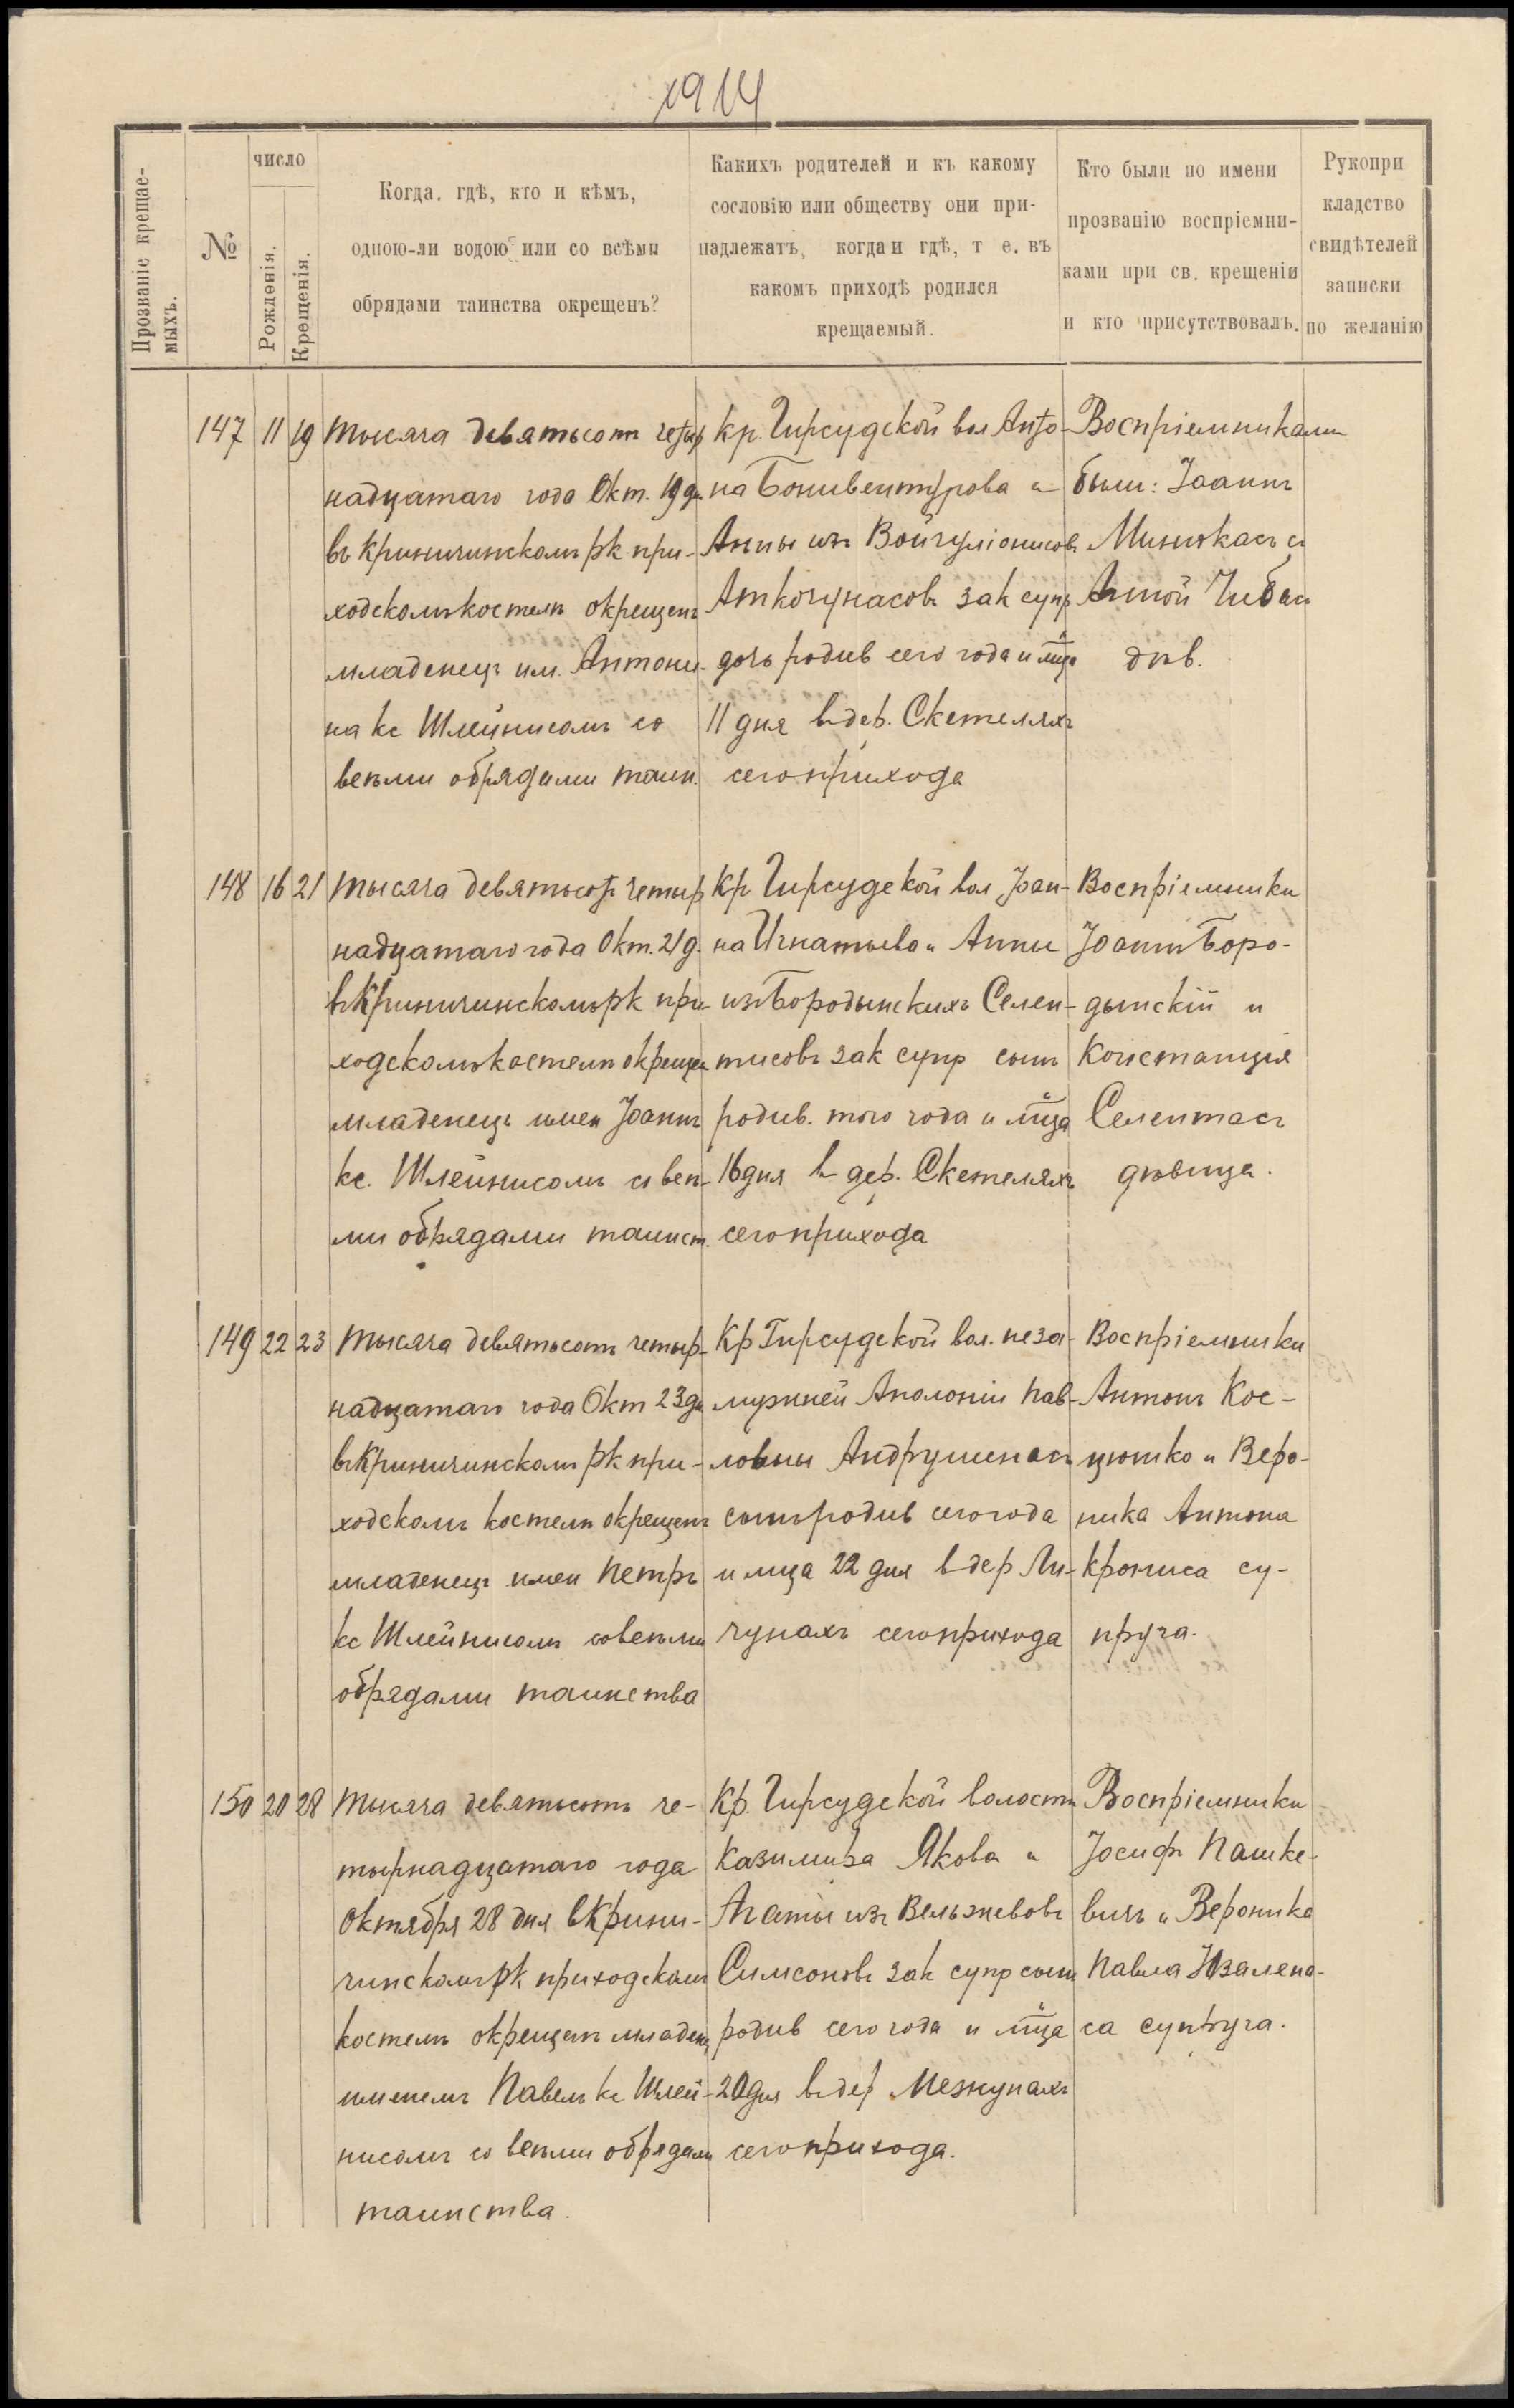 1914
Прозваніе крещае-
мыхъ.
№
число
Рожденія.
Крещенія.
Когда, гдѣ, кто и кѣмъ,
одною-ли водою или со всѣми
обрядами таинства окрещенъ?
Какихъ родителей и къ какому
сословію или обществу они при-
надлежатъ, когда и гдѣ, т е. въ
какомъ приходѣ родился
крещаемый.
Кто были по имени
прозванію воспріемни-
ками при св. крещеніи
и кто присутствовалъ.
Рукопри
кладство
свидѣтелей
записки
по желанію
147 11 19
Тысяча девятьсотъ четыр
надцатаго года Окт. 19 дн
въ Криничинскомъ рк при-
ходскомъ костелѣ окрещенъ
младенецъ им. Антони-
на кс Шлейнисомъ со
всѣми обрядами таин.
Кр. Гирсудской вол Анто-
на Бонивентурова и
Анны изъ Войчуліонисовъ
Аткочунасовъ зак супр
дочь родив сего года и мца
11 дня въ дер. Скетеляхъ
сего прихода
Воспріемниками
были: Іоаннъ
Минкасъ съ
Анной Чибасъ
дѣв.
148 16 21
Тысяча девятьсотъ четыр
надцатаго года Окт. 21 д.
въ Криничинскомъ рк при-
ходскомъ костелѣ окрещен
младенецъ имен Іоаннъ
кс. Шлейнисомъ со всѣ-
ми обрядами таинст.
Кр Гирсудской вол Іоан-
на Игнатьева и Анны
изъ Бородынскихъ Селен-
тисовъ зак супр сынъ
родив. того года и мца
16 дня въ дер. Скетеляхъ
сего прихода
Воспріемники
Іоаннъ Боро-
дынскій и
Констанція
Селентасъ
дѣвица.
149 22 23
Тысяча девятьсотъ четыр-
надцатаго года Окт 23 дн
въ Криничинскомъ рк при-
ходскомъ костелѣ окрещенъ
младенецъ имен Петръ
кс Шлейнисомъ со всѣми
обрядами таинства
Кр Гирсудской вол. неза-
мужней Аполоніи Пав-
ловны Андрушенасъ
сынъ родив сего года
и мца 22 дня въ дер Ли-
чунахъ сего прихода
Воспріемники
Антонъ Кос-
цюшко и Веро-
ника Антона
Крониса су-
пруга.
150 20 28
Тысяча девятьсотъ че-
тырнадцатаго года
Октября 28 дня въ Крини-
чинскомъ рк приходскомъ
костелѣ окрещенъ младенц
именемъ Павелъ кс Шлей-
нисомъ со всѣми обрядами
таинства.
Кр. Гирсудской волости
Казимира Якова и
Агаты изъ Вельжевовъ
Симсоновъ зак супр сынъ
родив сего года и мца
20 дня въ дер Межунахъ
сего прихода.
Воспріемники
Іосифъ Пашке-
вичъ и Вероника
Павла Юзалена-
са супруга.